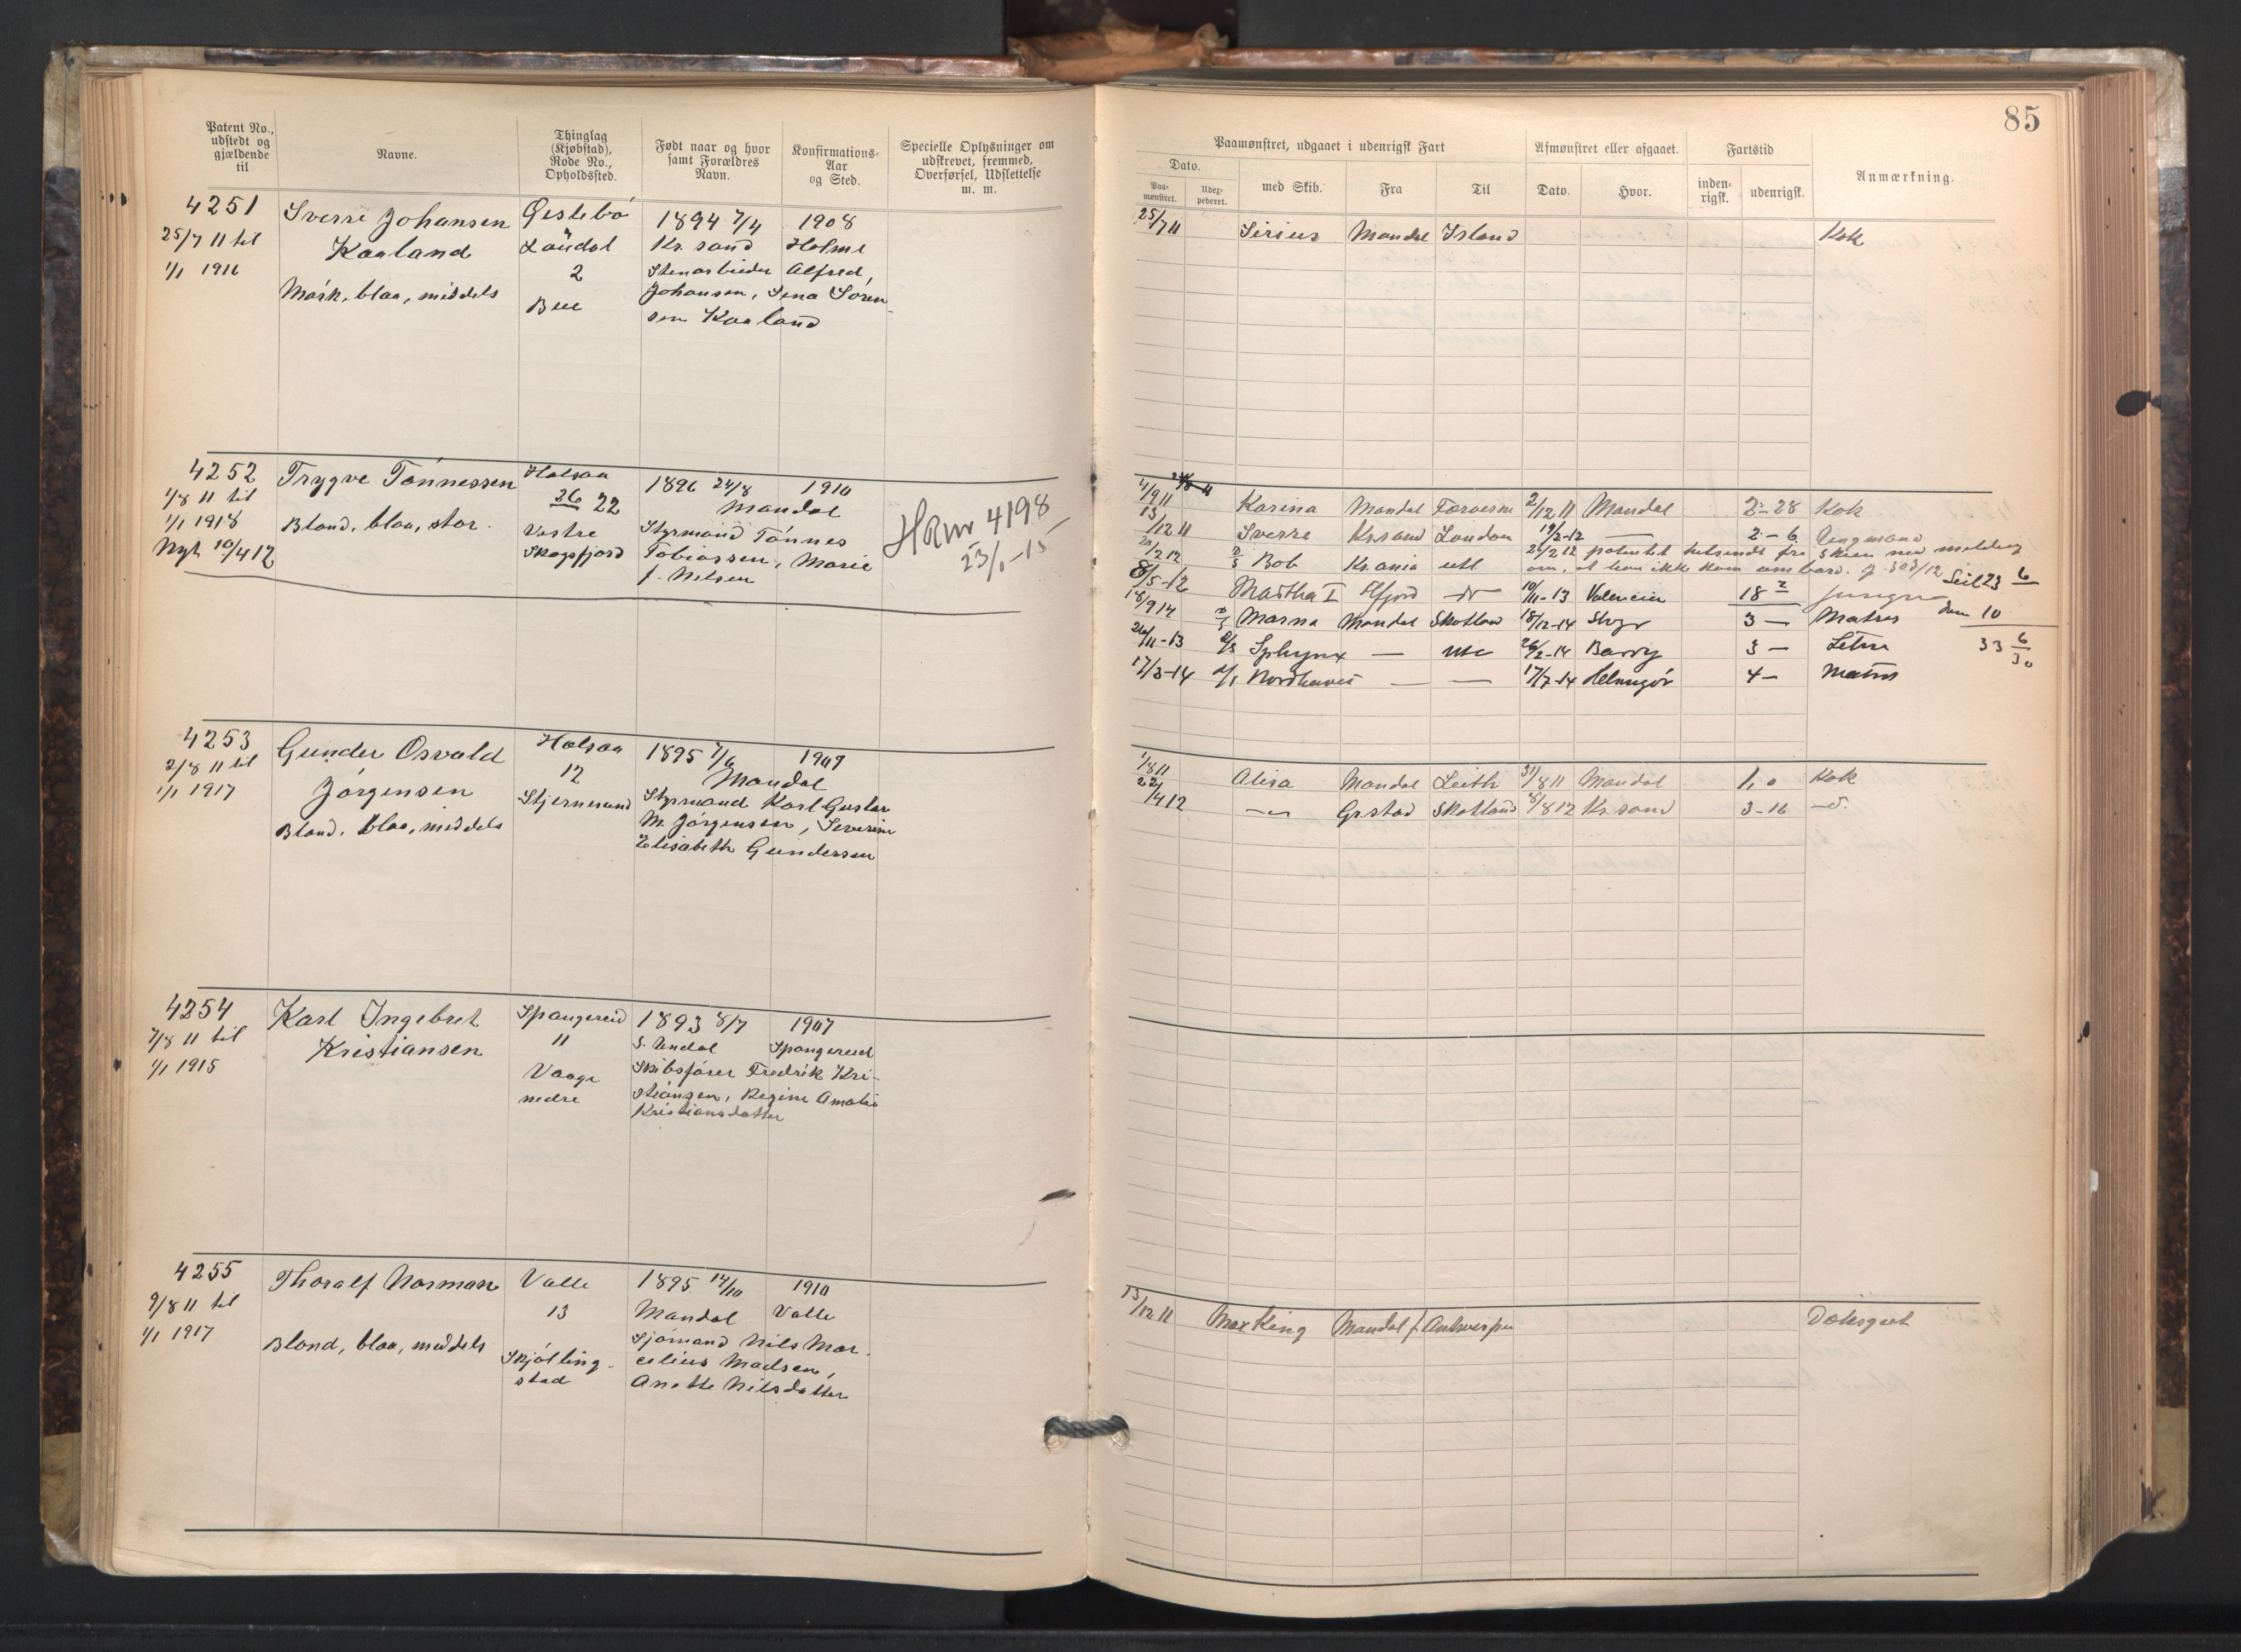 85
Patent No., udstedt og gjældende til
Navne.
Thinglag (Kjøbstad), Rode No., Opholdssted.
Født naar og hvor samt Forældres Navn.
Konfirmations-Aar og Sted.
Specielle Oplysninger om udskrevet, fremmed, Overførsel, Udslettelse m. m.
Paamønstret, udgaaet i udenrigsk Fart
Afmønstret eller afgaaet.
Fartstid
Anmærkning.
Dato.
Paamønstret.
med Skib.
Fra
Til
Dato.
Hvor.
indenrigsk.
udenrigsk.
4251
25/7 11 til
1/1 1916
Sverre Johansen
Kaaland
Mörk, blaa, middels
Öislebö
Löudal
2
Bue
1894 7/4 1908
Kr. sand Holme
Stenarbeider Alfred
Johansen, Sena Sören-
sen Kaaland
25/7 11 Sirius Mandal Island Kok
4252
1/8 11 til
1/1 1918
Nyt 10/4 12
Trygve Tönnessen
Blond, blaa, stor
Halsaa
26 22
Vestre
Skogsfjord
1896 24/8 1910
Mandal
Styrmand Tönnes
Tobiassen, Marie
f. Nilsen
HRnr 4198
23/1-15
4/9 11 Karina Mandal Færøerne 2/12 11 Mandal 2-28 Kok
13/12 11 Sverre Kr.sand London 19/2-12 — 2-6
20/2 12 Bob Kr.ania utl 26/2 12 patentet tilsendt fra Skien med melding
om, at han ikke kom ombord. J. 303/12
8/5-12 Martha I 10/11-13 Valencia 18 Jungm Seil 23 6
18/9 14 Marna Mandal Skotland 18/12-14 3 — Matros dam 10
26/11-13 Sphynx — 26/2-14 Barry 3 — 33 6/30
17/3-14 Nordhavet — — 17/7-14 Helsingör 4 — Matros
4253
2/8 11 til
1/1 1917
Gunder Osvald
Jörgensen
Blond, blaa, middels
Halsaa
12
Stjernesund
1895 7/6 1909
Mandal
Styrmand Karl Gustav
M. Jörgensen, Severine
Elisabeth Gundersen
1/8 11 Alisa Mandal Leith 31/8 11 Mandal 1,0 Kok
22/4 12 — Gr.stad Skotland 8/8 12 Kr. sand 3-16 —
4254
7/8 11 til
1/1 1915
Karl Ingebret
Kristiansen
Spangereid
11
Vaage
nedre
1893 8/7 1907
S. Undal Spangereid
Skibsförer Fredrik Kri-
stiansen, Regine Amalie
Kristiansdatter
4255
9/8 11 til
1/1 1917
Thoralf Norman
Blond, blaa, middels
Valle
13
Skjölling-
stad
1895 14/10 1910
Mandal Valle
Sjömand Nils Mar-
celius Madsen,
Anette Nilsdatter
13/12 11 Max King Mandal f. Antwerpen Dæksgut